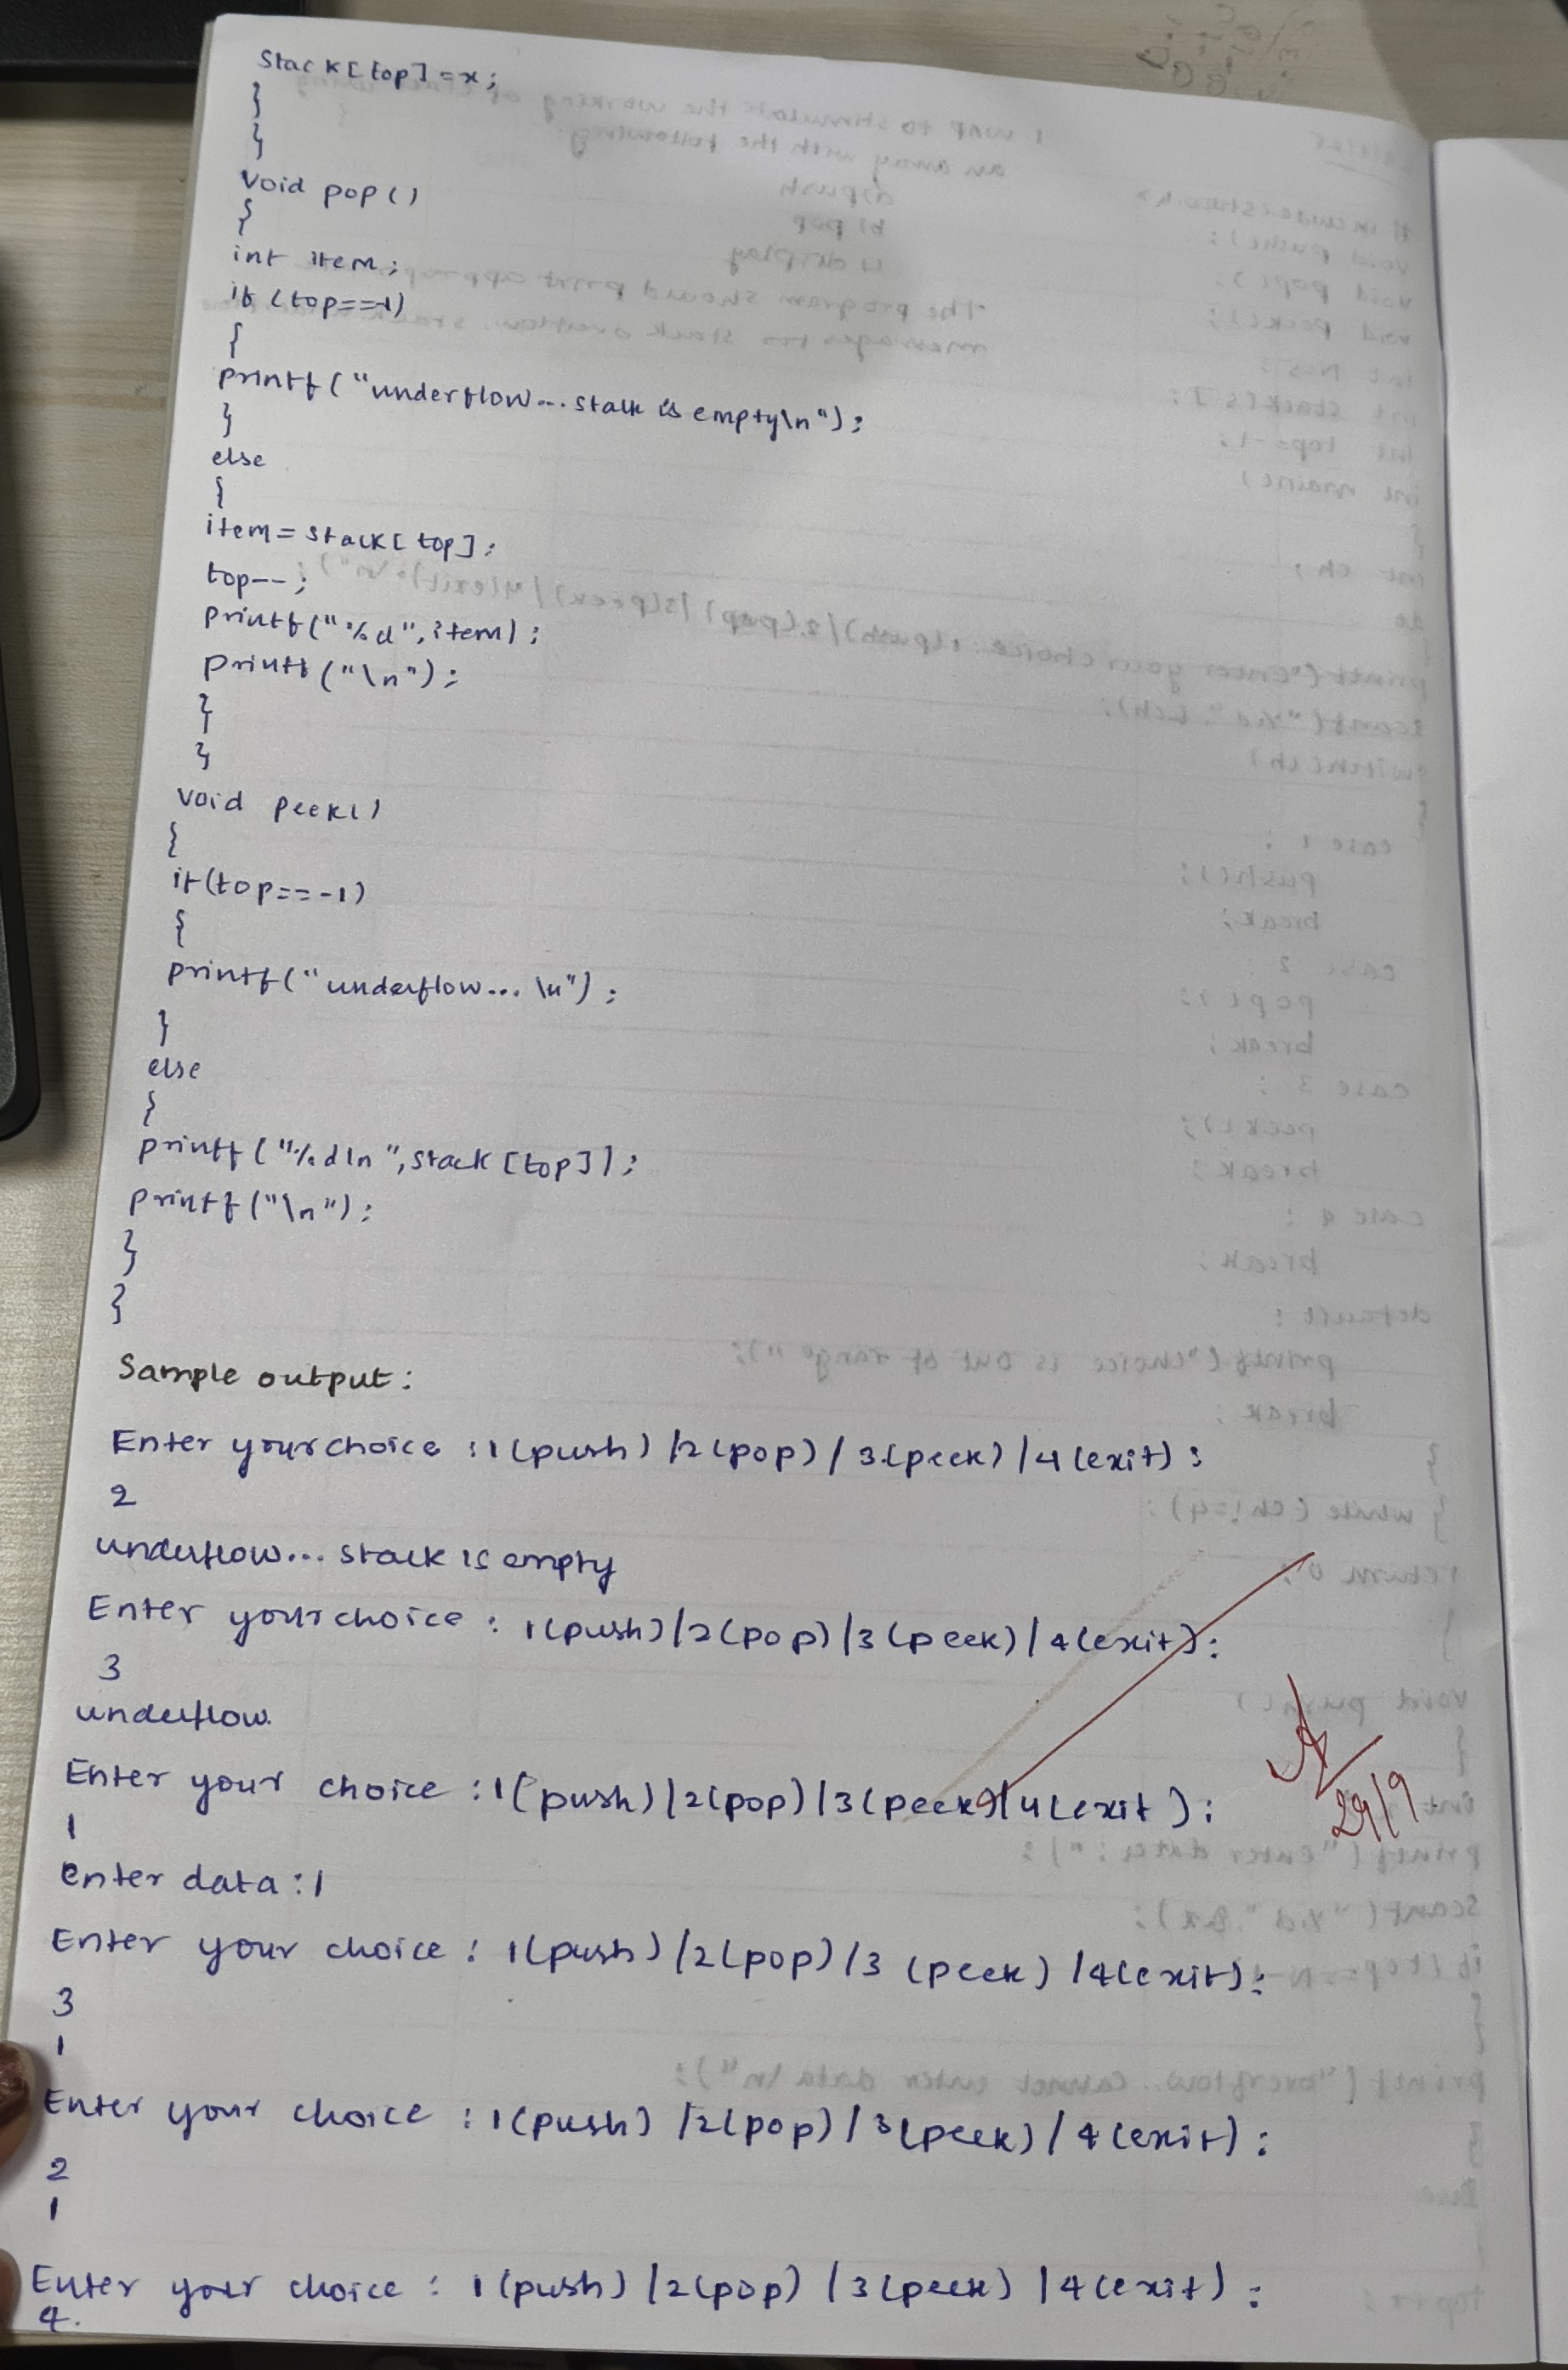 Stack[top]=x;
}
}
void pop()
{
int item;
if (top==-1)
{
printf("underflow... stack is empty\n");
}
else
{
item=stack[top];
top--;
printf("%d",item);
printf("\n");
}
}
void peek()
{
if(top==-1)
{
printf("underflow... \n");
}
else
{
printf("%d\n",stack[top]);
printf("\n");
}
}
Sample output:
Enter your choice :1(push)/2(pop)/3(peek)/4(exit):
2
underflow... stack is empty
Enter your choice : 1(push)/2(pop)/3(peek)/4(exit):
3
underflow.
Enter your choice :1(push)/2(pop)/3(peek)/4(exit):
1
Enter data:1
Enter your choice : 1(push)/2(pop)/3(peek)/4(exit):
3
1
Enter your choice :1(push)/2(pop)/3(peek)/4(exit):
2
1
Enter your choice : 1(push)/2(pop)/3(peek)/4(exit):
4.
29/9